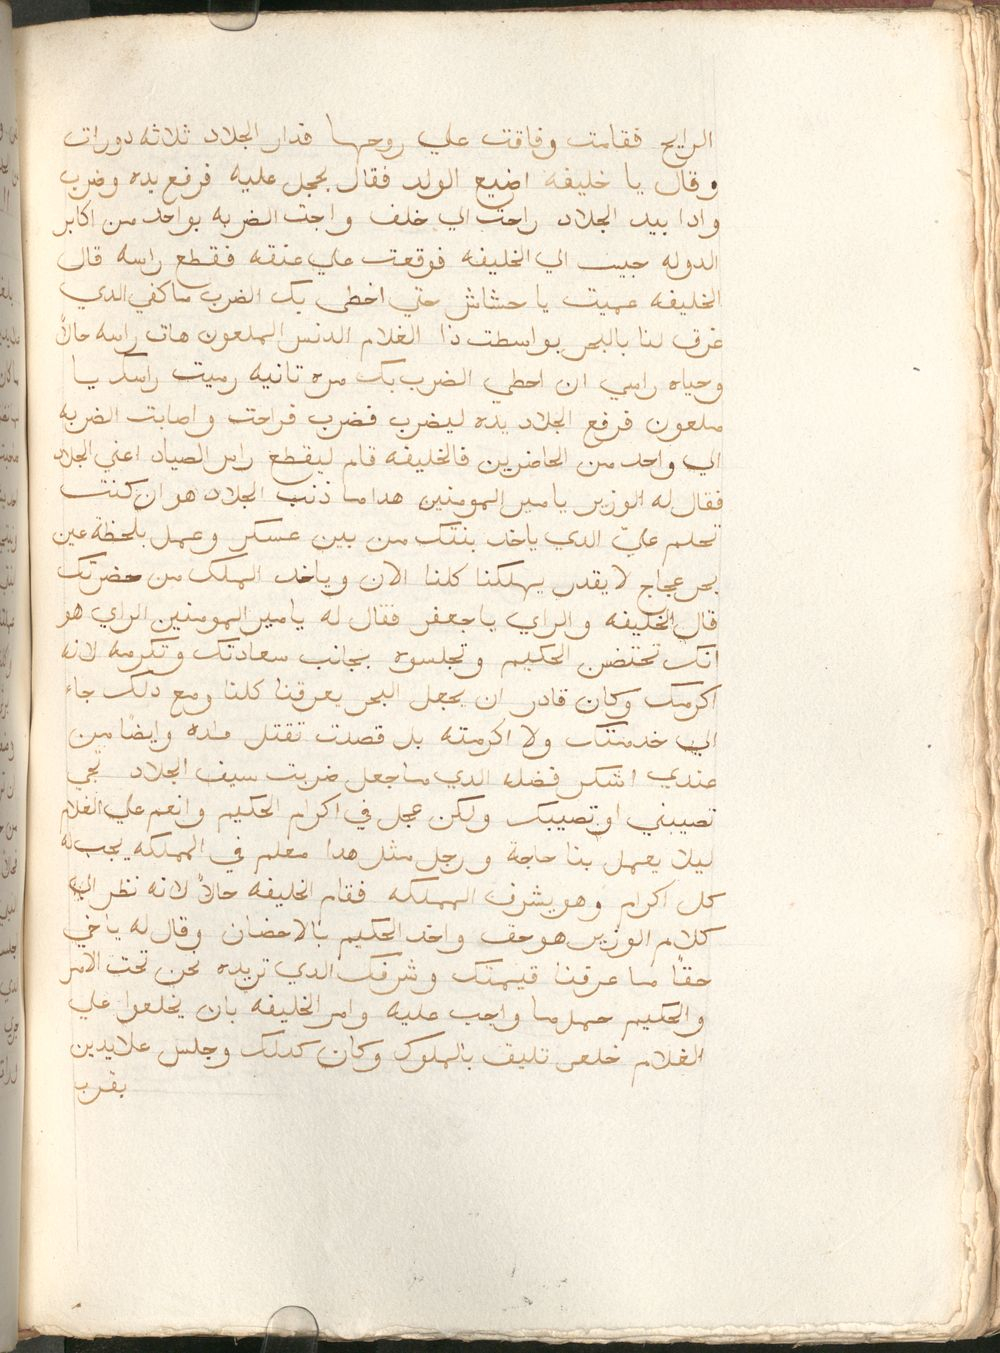 الرايح فقامت وفاقت علي روحها فدار الجلاد ثلاثه دورات
وقال يا خليفه اضيع الولد فقال عجل عليه فرفع يده وضرب
وادا بيد الجلاد راحت الي خلف واجت الضربه بواحد من اكابر
الدوله حبيب الي الخليفه فوقعت علي عنقه فقطع راسه قال
الخليفه عميت يا حشاش حتي اخطي بك الضرب ما كفي الدي
غرق لنا بالبحر بواسطت دا الغلام الدنس الملعون هات راسه حالاً
وحياه راسي ان اخطي الضرب بك مره تانيه رميت راسك يا
ملعون فرفع الجلاد يده ليضرب فضرب فراحت واصابت الضربه
الي واحد من الحاضرين فالخليفه قام ليقطع راس الصياد اعني الجلاد
فقال له الوزير يامير المومنين هدا ما ذنب الجلاد هو ان كنت
تحلم عليّ الدي ياخد بنتك من بين عسكر وعمل بلحظة عين
بحر عجاج لا يقدر يهلكنا كلنا الان وياخد الملك من حضرتك
قال الخليفه والراي يا جعفر فقال له يامير المومنين الراي هو
انك تحتضن الحكيم وتجلسوه بجانب سعادتك وتكرمه لانه
اكرمك وكان قادر ان يجعل البحر يغرقنا كلنا ومع دلك جاء
الي خدمتك ولا اكرمته بل قصدت تقتل ولده وايضا من
عندي اشكر فضله الدي ما جعل ضربت سيف الجلاد تجي
تصيبني او تصيبك ولكن عجل في اكرام الحكيم وانعم علي الغلام
ليلا يعمل بنا حاجة ورجل مثل هدا معلم في المملكه يجب له
كل اكرام وهو يشرف المملكه فقام الخليفه حالاً لانه نظر الي
كلام الوزير هو حق واخد الحكيم بالاحضان وقال له ياخي
حقاً ما عرفنا قيمتك وشرفك الدي تريده نحن تحت الامر
والحكيم عمل ما واجب عليه وامر الخليفه بان يخلعوا علي
الغلام خلعى تليق بالملوك وكان كدلك وجلس علايدين
بقرب